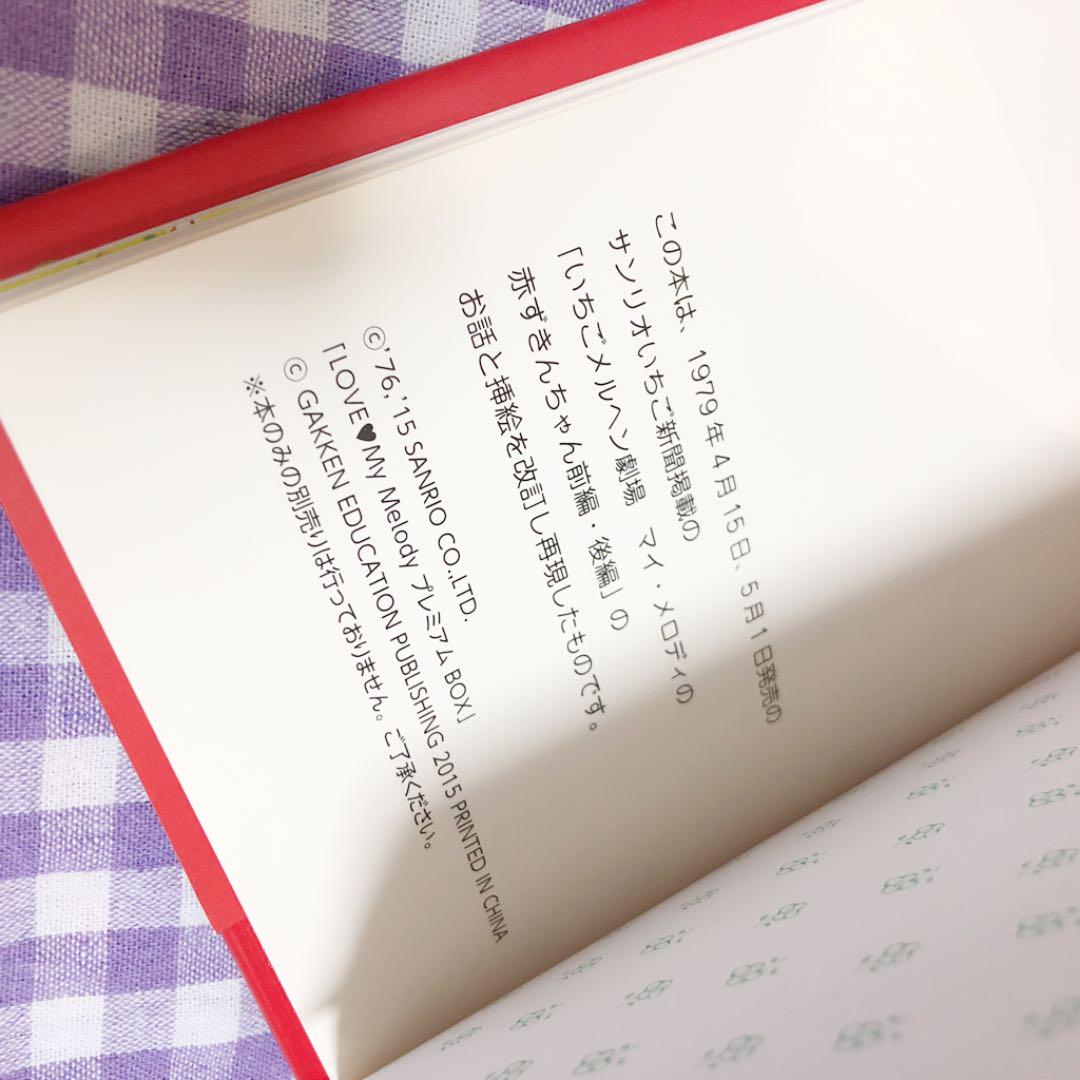 この本は、1979年4月15日、5月1日発売の
サンリオいちご新聞掲載の
「いちごメルヘン劇場　マイ・メロディの
赤ずきんちゃん前編・後編」の
お話と挿絵を改訂し再現したものです。
©'76,'15 SANRIO CO.,LTD.
「LOVE♥My Melody プレミアム BOX」
© GAKKEN EDUCATION PUBLISHING 2015 PRINTED IN CHINA
※本のみの別売りは行っておりません。ご了承ください。